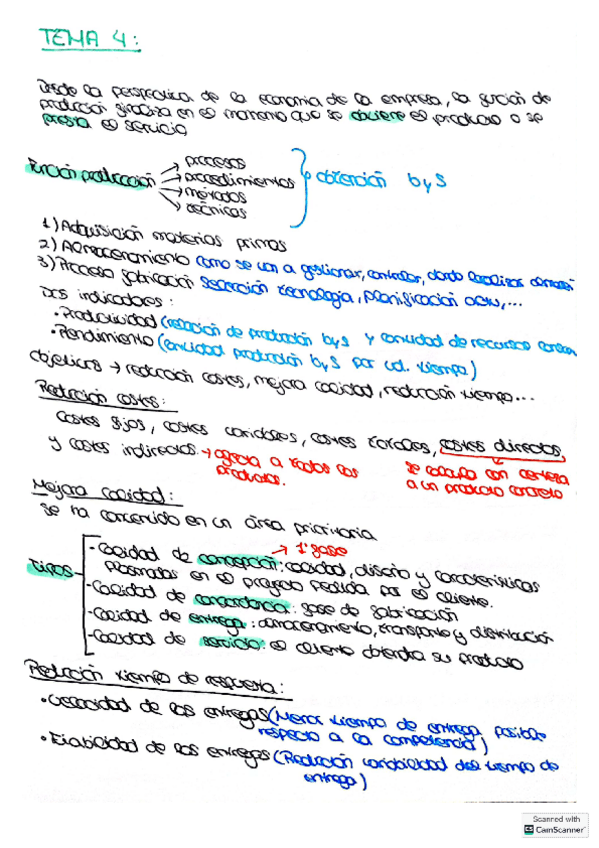 TEMA 4:
Desde la perspectiva de la economia de la empresa, la función de
producción finaliza en el momento que se obtiene el producto o se
presta el servicio
Función producción → procesos
→ procedimientos
→ métodos
→ técnicas
obtención b y S
1) Adquisición materias primas
2) Almacenamiento como se van a gestionar, controlar, donde localizar almacén
3) Proceso fabricación Selección tecnologia, planificación activ,...
Dos indicadores:
• Productividad (relación de producción b y S y cantidad de recursos
• Rendimiento (cantidad producción b y S por ud. tiempo)
Objetivos → reducción costes, mejora calidad, reducción tiempo...
Reducción costes:
Costes fijos, costes variables, costes totales, costes directos,
y costes indirectos. → afecta a todos los
productos.
se calcula con certeza
a un producto concreto
Mejora calidad:
se ha convertido en un área prioritaria
→ 1ª fase
Tipos
- Calidad de concepción: calidad, diseño y características
plasmadas en el proyecto pedida por el cliente.
- Calidad de concordancia: fase de fabricación
- Calidad de entrega: almacenamiento, transporte y distribución
- Calidad de servicio: el cliente obtendra su producto
Reducción tiempo de respuesta:
• Velocidad de las entregas (Menor tiempo de entrega posible
respecto a la competencia)
• Fiabilidad de las entregas (Reducción variabilidad del tiempo de
entrega)
Scanned with
CS CamScanner